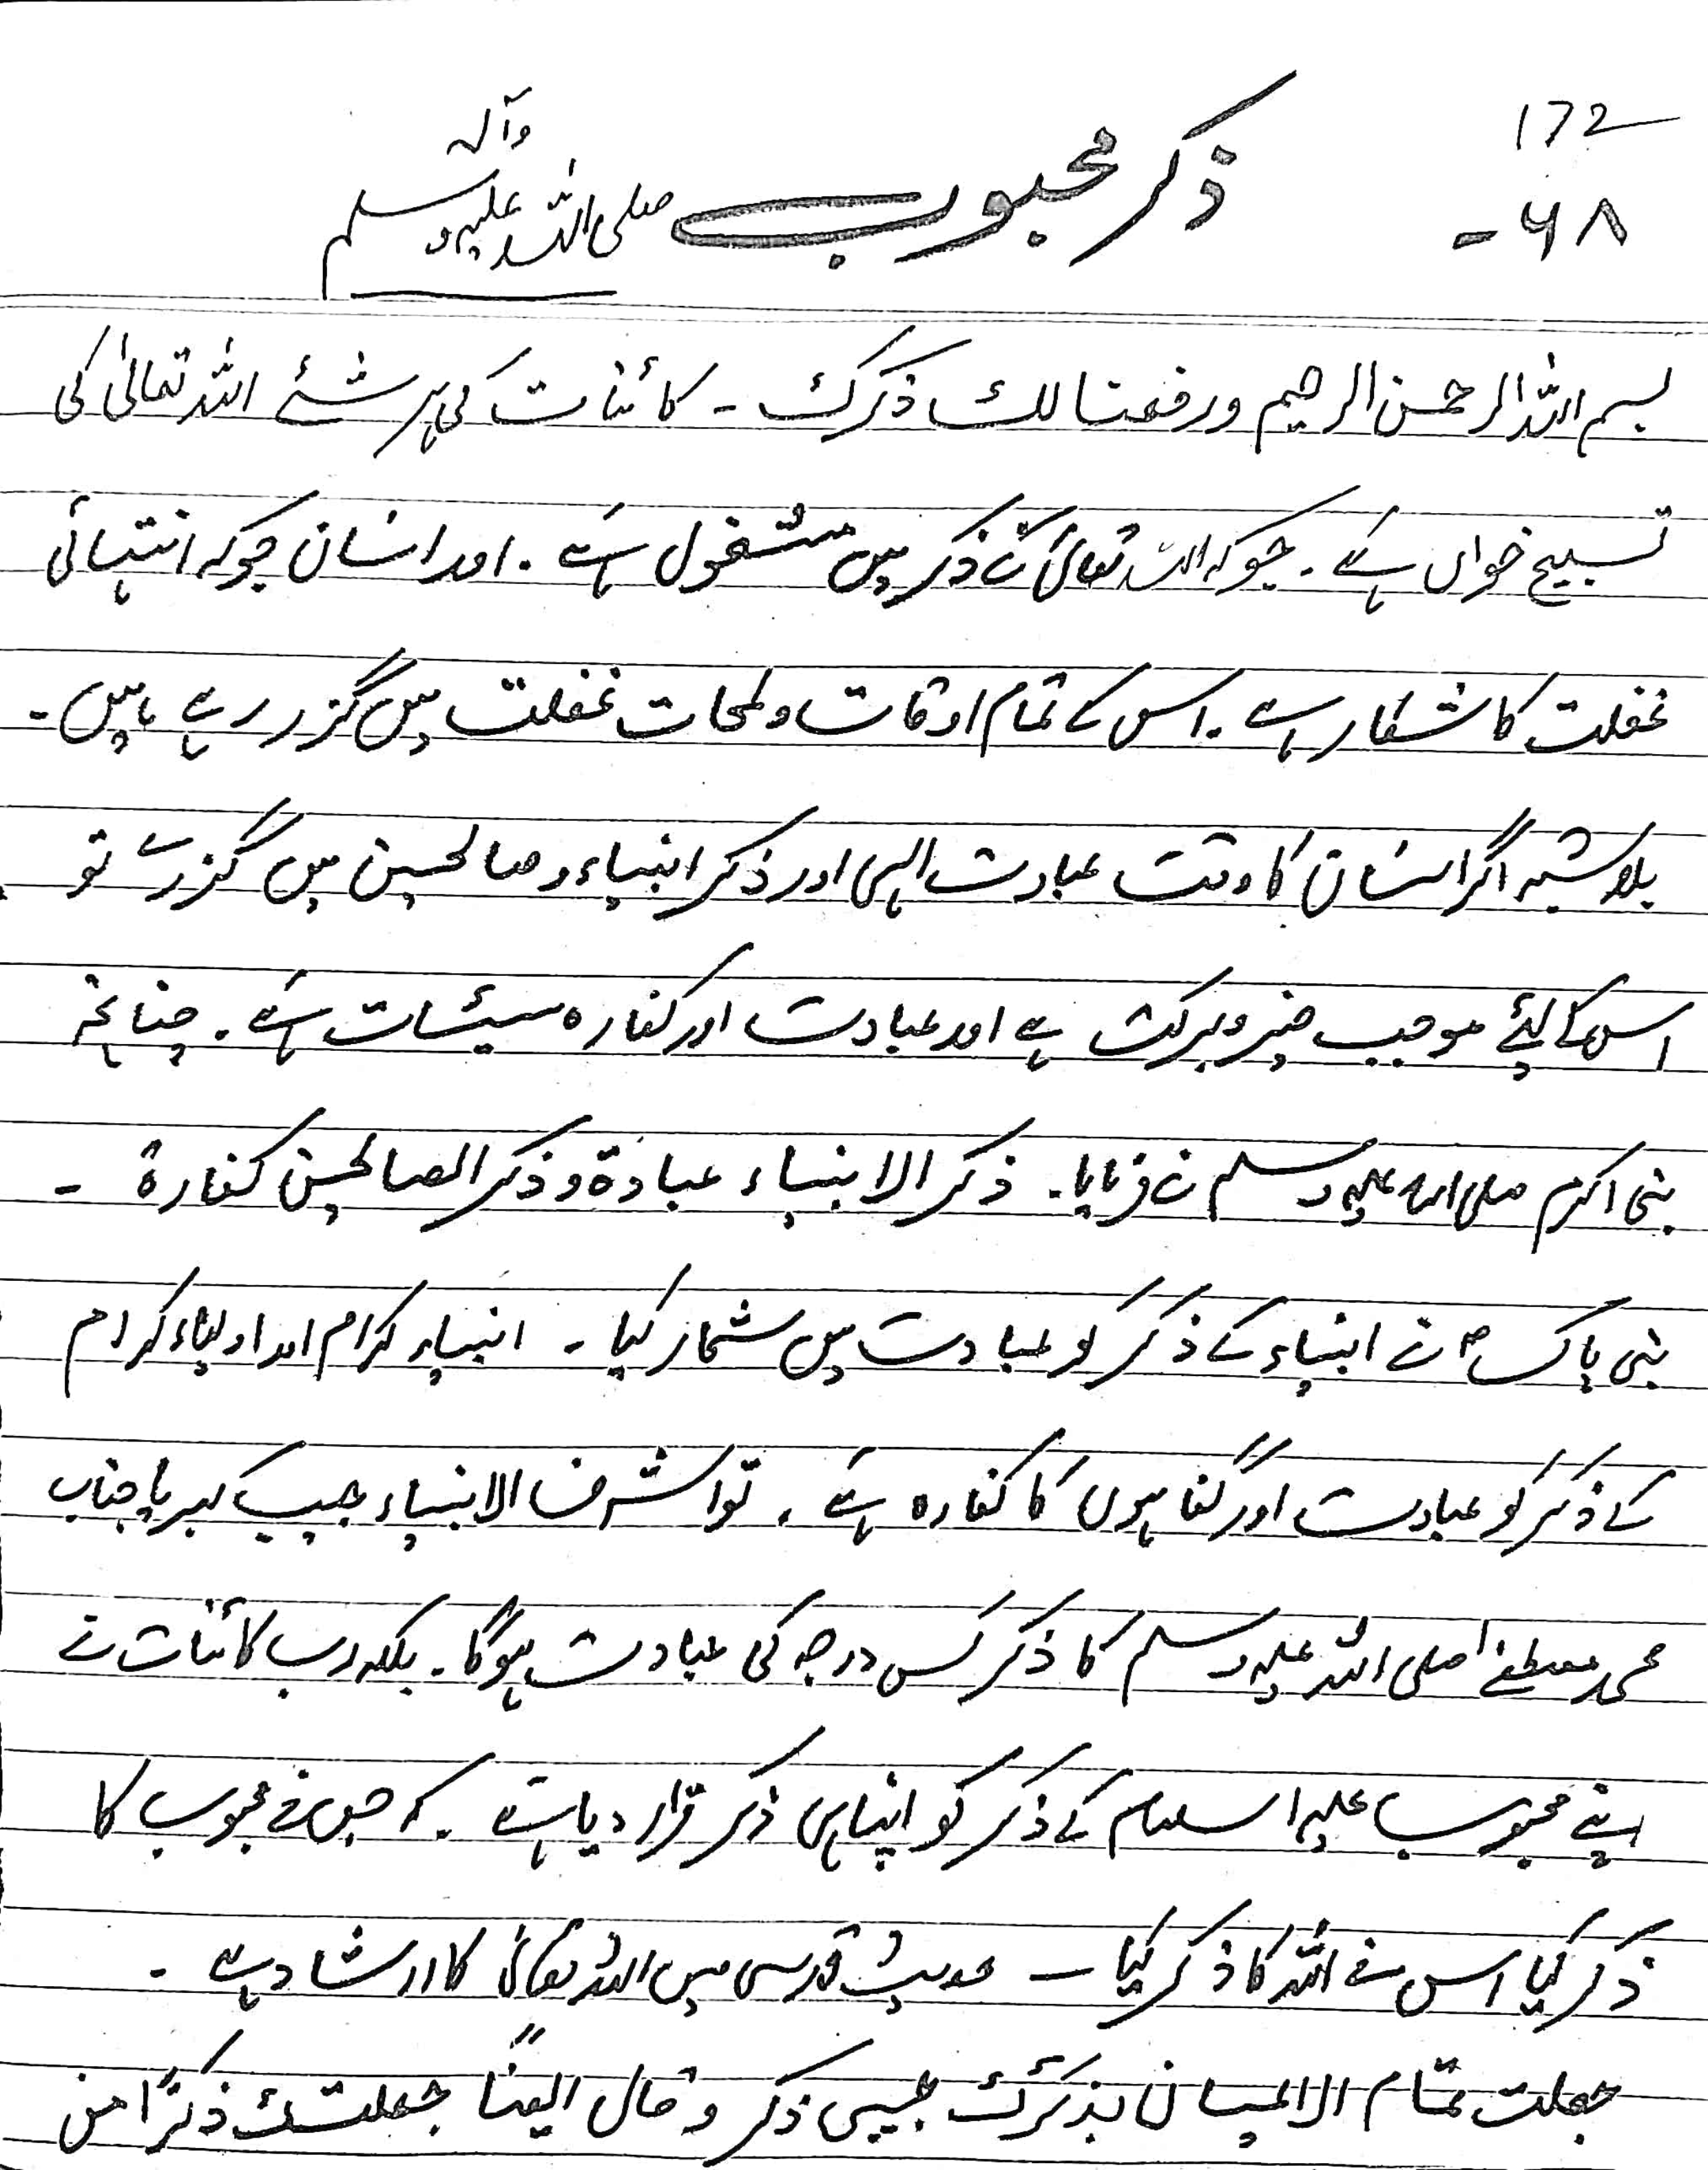 172
۶۸-
ذکر محبوب صلی اللہ علیہ وآلہ وسلم
بسم اللہ الرحمن الرحیم ورفعنا لک ذکرک - کائنات کی ہر شئے اللہ تعالیٰ کی
تسبیح خواں ہے . جو کہ اللہ تعالیٰ کے ذکر میں مشغول ہے . اور انسان جو کہ انتہائی
غفلت کا شکار ہے . اس کے تمام اوقات و لمحات غفلت میں گزر رہے ہیں -
بلا شبہ اگر انسان کا وقت عبادت الہی اور ذکر انبیاء و صالحین میں گزرے تو
اس کے لئے موجب خیر و برکت ہے اور عبادت اور کفارہ سیئات ہے . چنانچہ
نبی اکرم صلی اللہ علیہ وسلم نے فرمایا . ذکر الانبیاء عبادۃ و ذکر الصالحین کفارۃ -
نبی پاک ؐ نے انبیاء کے ذکر کو عبادت میں شمار کیا - انبیاء کرام اور اولیاء کرام
کے ذکر کو عبادت اور گناہوں کا کفارہ ہے . تو اشرف الانبیاء حبیب کبریا جناب
محمد مصطفےٰ صلی اللہ علیہ وسلم کا ذکر کس درجہ کی عبادت ہوگا . بلکہ رب کائنات نے
اپنے محبوب علیہ السلام کے ذکر کو اپنا ہی ذکر قرار دیا ہے . کہ جس نے محبوب کا
ذکر کیا اس نے اللہ کا ذکر کیا - حدیث قدسی میں اللہ تعالیٰ کا ارشاد ہے -
جعلت تمام الایمان بذکرک ذکر و قال ایضًا جعلتک ذکرًا من